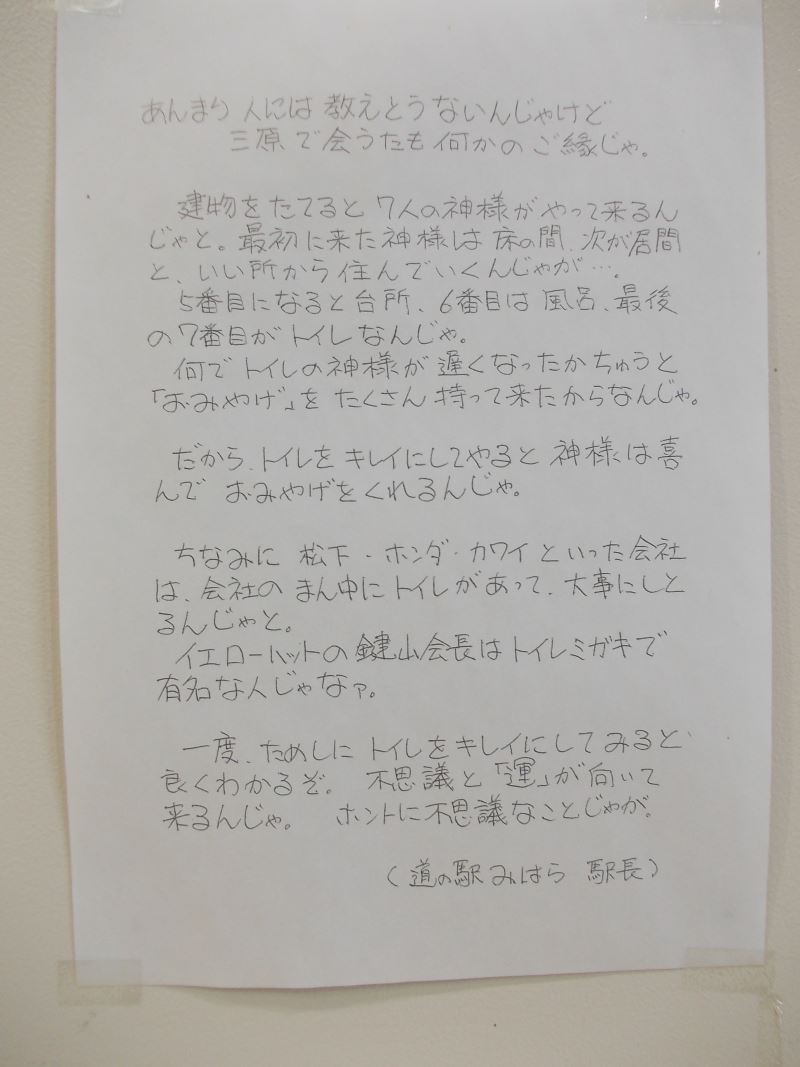 あんまり人には教えとうないんじゃけど
三原で会うたも何かのご縁じゃ。
建物をたてると7人の神様がやって来るん
じゃと。最初に来た神様は床の間、次が居間
と、いい所から住んでいくんじゃが…。
5番目になると台所、6番目は風呂、最後
の7番目がトイレなんじゃ。
何でトイレの神様が遅くなったかちゅうと
「おみやげ」をたくさん持って来たからなんじゃ。
だから、トイレをキレイにしてやると神様は喜
んでおみやげをくれるんじゃ。
ちなみに松下・ホンダ・カワイといった会社
は、会社のまん中にトイレがあって、大事にしと
るんじゃと。
イエローハットの鍵山会長はトイレミガキで
有名な人じゃなァ。
一度、ためしにトイレをキレイにしてみると
良くわかるぞ。不思議と「運」が向いて
来るんじゃ。ホントに不思議なことじゃが。
(道の駅みはら 駅長)